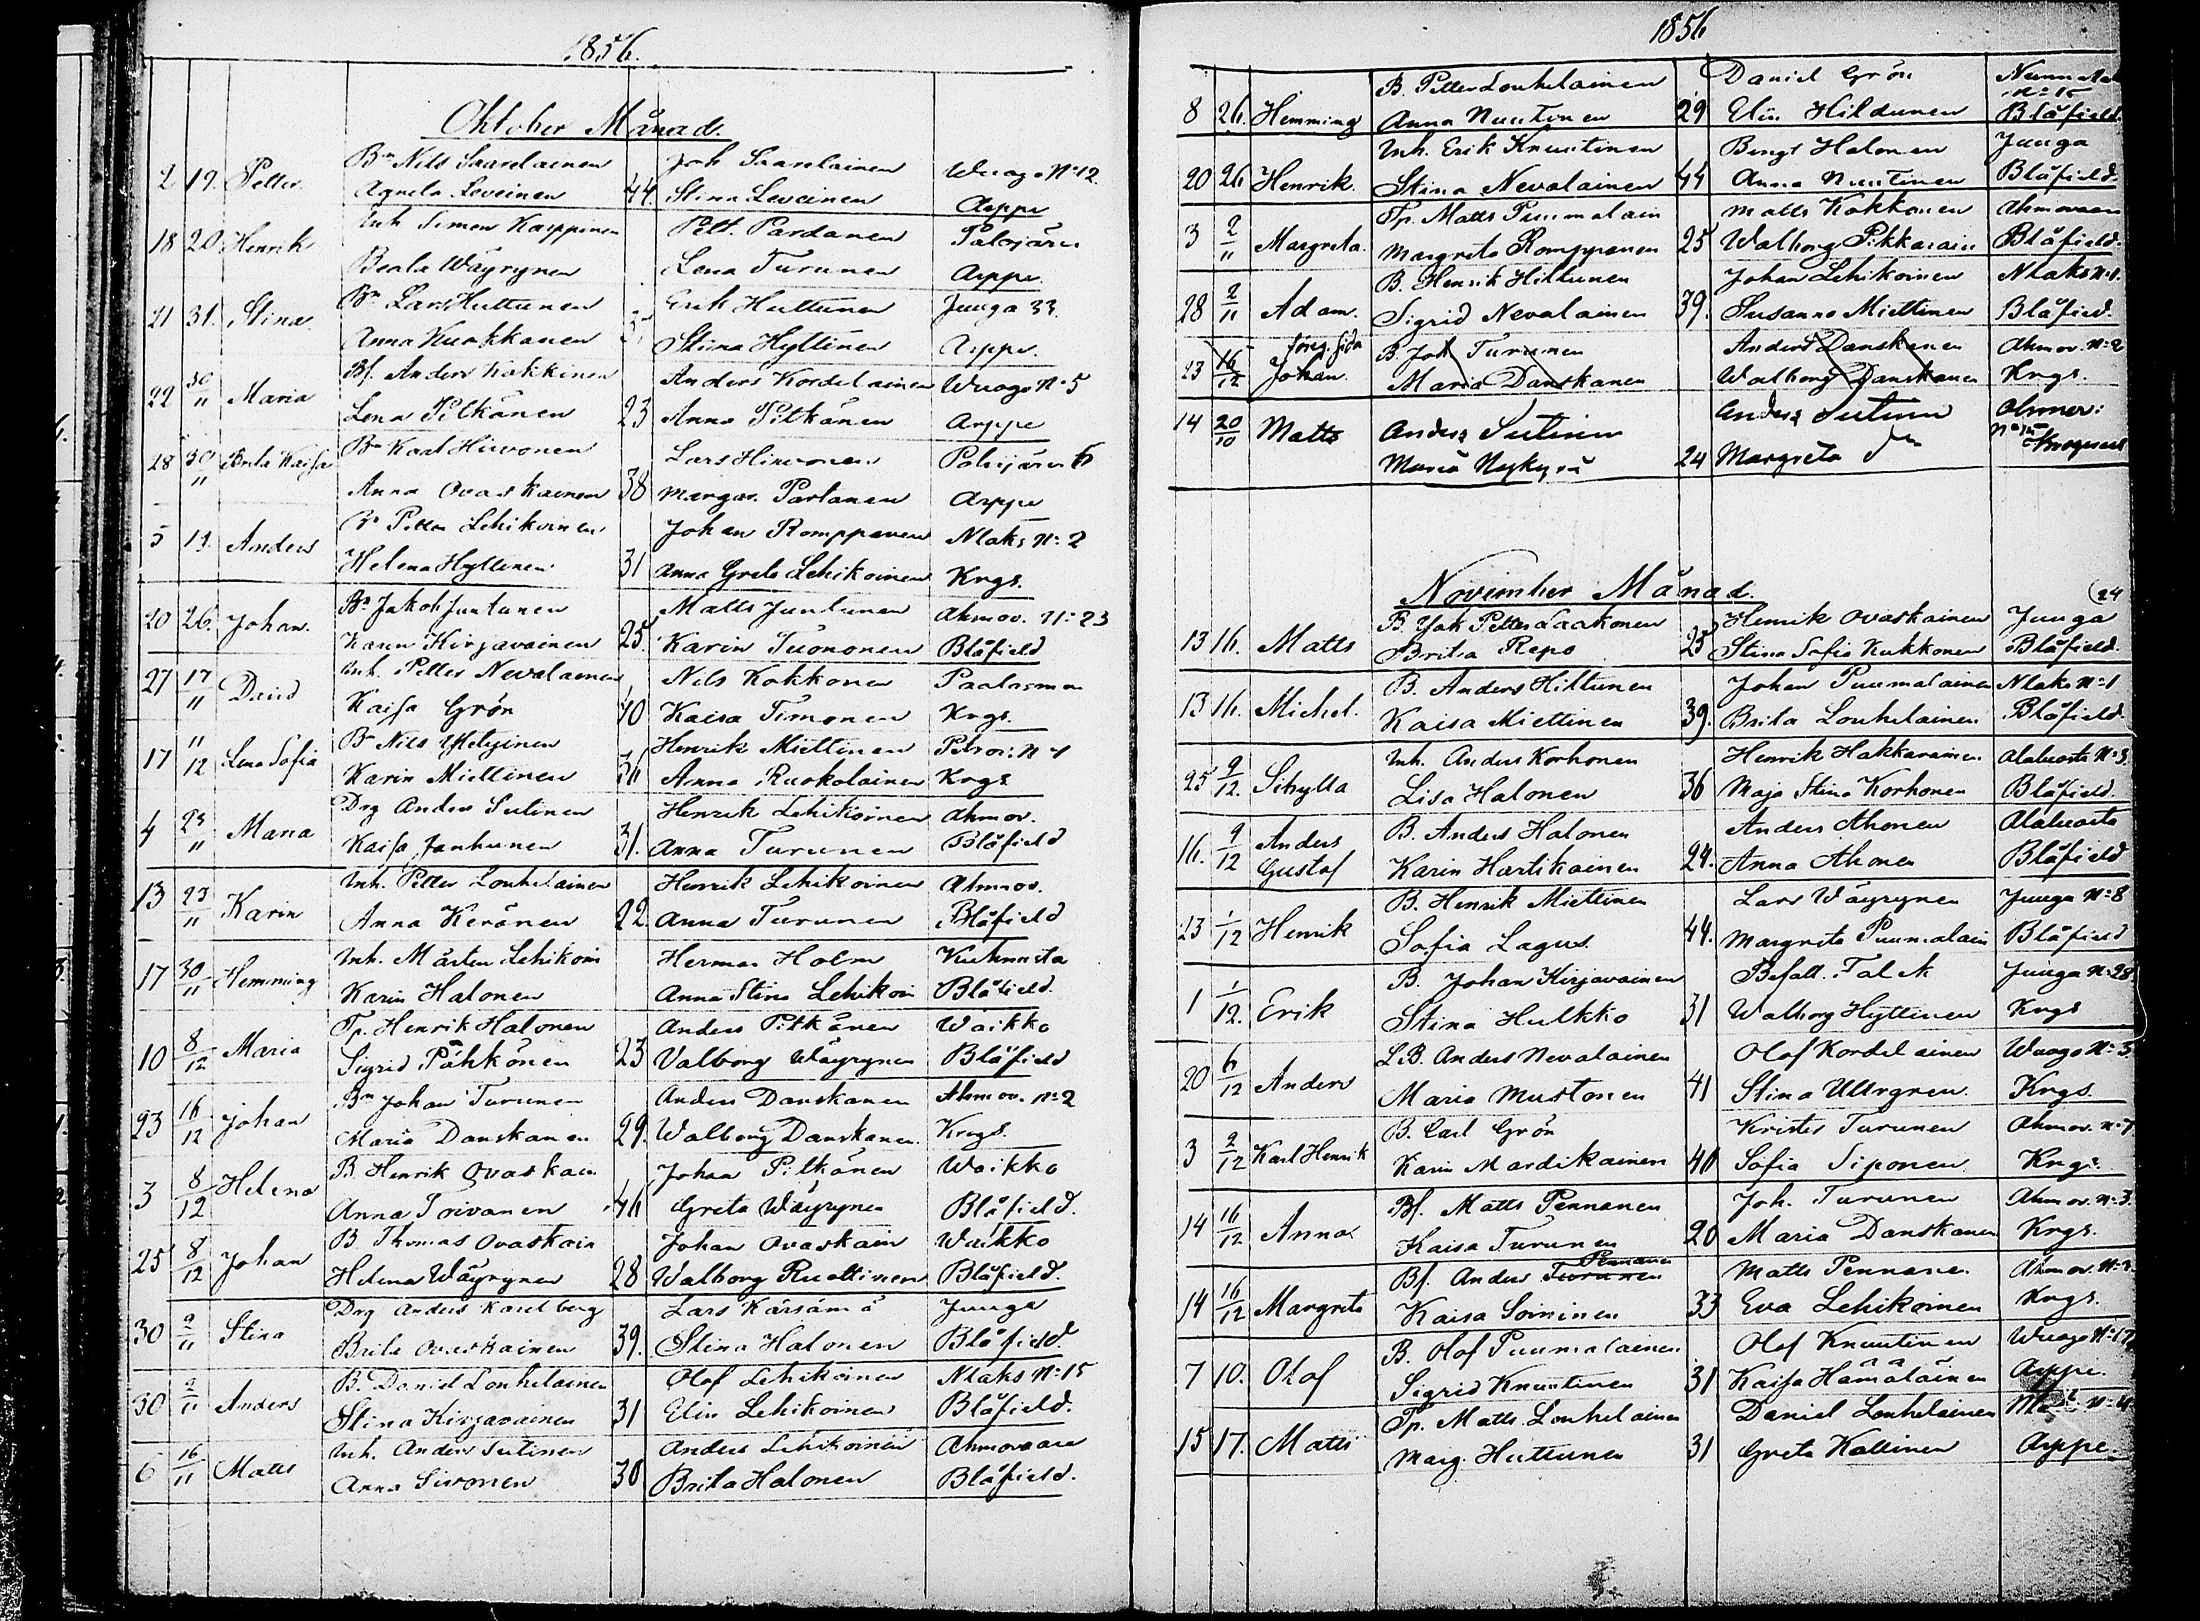 1856.
Oktober Månad.
2 19. Petter. Bn Nils Saarelainen Joh Saarelainen Wuago No 12.
Agneta Leveinen 44. Stina Leveinen Arppe
18 20 Henrik Inh Simon Karppinen Pett. Pardanen Palojärvi
Beata Wäyrynen Lena Turunen Arppe
21 31. Stina Bn Lars Huttunen Erik Huttunen Juuga 33.
Anna Kuokkanen Stina Hyttinen Arppe.
22 30/11 Maria Bf. Anders Kokkinen Anders Kordelainen Wuago No 5
Lena Pitkänen 23 Anna Pitkänen Arppe
28 30/11 Brita Kaisa Bn Karl Hirvonen Lars Hirvonen Polvijärvi 6
Anna Ovaskainen 38 Margar. Partanen Arppe
5 19. Anders Bn Petter Lehikoinen Johan Romppanen Nlaks No 2
Helena Hyttinen 31 Anna Greta Lehikoinen Krgs.
20 26. Johan. Bn Jakob Juntunen Matts Juntunen Ahmov. No 23
Karin Kirjavainen 25. Karin Tuononen Blåfield
27 17/11 David Inh. Petter Nevalainen Nils Kokkonen Paalasmaa
Kaisa Grön 40 Kaisa Timonen Krgs.
17 11/12 Lena Sofia Bn Nils Yletyinen Henrik Miettinen Petrov: No 1
Karin Miettinen 36 Anna Ruokolainen Krgs
4 23/11 Maria Drg Anders Sutinen Henrik Lehikoinen Ahmov.
Kaisa Janhunen 31. Anna Turunen Blåfield
13 23/11 Karin Inh. Petter Louhelainen Henrik Lehikoinen Ahmov.
Anna Keränen 22. Anna Turunen Blåfield
17 30/11 Hemming Inh. Mårten Lehikoin Herman Holm Kuhnusta
Karin Halonen Anna Stina Lehikoin Blåfield.
10 8/12 Maria Tp. Henrik Halonen Anders Pitkänen Waikko
Sigrid Pähkönen 23 Valborg Wäyrynen Blåfield
23 16/12 Johan Bn Johan Turunen Anders Danskanen Ahmov. No 2
Maria Danskanen 29. Walborg Danskanen. Krgs.
3 8/12 Helena B Henrik Ovaskain Johan Pitkänen Waikko
Anna Toivanen 46 Greta Wäyrynen Blåfield.
25 8/12 Johan B Thomas Ovaskain Johan Ovaskain Waikko
Helena Wäyrynen 28 Walborg Ruottinen Blåfield.
30 2/11 Stina Drg Anders Karelberg Lars Kärsämä Juuga
Brita Ovaskainen 39. Stina Halonen Blåfield
30 2/11 Anders B. Daniel Louhelainen Olof Lehikoinen Nlaks No 15
Stina Kirjavainen 31 Elin Lehikoinen Blåfield.
6 16/11 Matts Inh. Anders Sutinen Anders Lehikoinen Ahmovaara
Anna Sivonen 30 Brita Halonen Blåfield.
1856
8 26. Hemming B. Petter Louhelainen Daniel Grön No 15
Anna Nuutinen 29 Elin Hildunen Blåfield.
20 26 Henrik. Inh. Erik Knuutinen Bengt Halonen Juuga
Stina Nevalainen 44 Anna Nuutinen Blåfield.
3 2/11 Margreta. Tp. Matts Puumalain Matts Kokkonen Ahmovaara
Margreta Romppanen 25 Walborg Pikkarain Blåfield.
28 2/11 Adam. B. Henrik Hiltunen Johan Lehikoinen Nlaks No 1.
Sigrid Nevalainen 39. Susanna Miettinen Blåfield.
föreg. sida
23 16/12 Johan. B. Joh Turunen Anders Danskanen Ahmov. No 2
Maria Danskanen Walborg Danskanen Krgs.
14 20/10 Matts Anders Sutinen Anders Sutinen Ahmov:
Maria Nykyrä 24 Margreta
November Månad.
(24
13 16. Matts B. Joh Petter Laakonen Henrik Ovaskainen Juuga
Brita Repo 25 Stina Sofia Kukkonen Blåfield.
13 16. Michel. B. Anders Hiltunen Johan Puumalainen Nlaks No 1
Kaisa Miettinen 39. Brita Louhelainen Blåfield.
25 9/12. Sibylla Inh. Anders Korhonen Henrik Hakkarainen Alaluosta No 3.
Lisa Halonen 36 Maja Stina Korhonen Blåfield.
16. 9/12 Anders Gustaf B. Anders Halonen Anders Ahonen Alaluosta
Karin Hartikainen 24. Anna Ahonen Blåfield
23 1/12 Henrik B. Henrik Miettinen Lars Wäyrynen Juuga No 8
Sofia Lagus. 44. Margreta Puumalain Blåfield
1 1/12. Erik B. Johan Kirjavainen Befall. Falck Juuga No 28
Stina Hulkko 31 Walborg Hyttinen Krgs
20 6/12 Anders L.B. Anders Nevalainen Olof Kordelainen Wuago No 5
Maria Mustonen 41 Stina Ullrgren. Krgs.
3 2/12 Karl Henrik B. Carl Grön Krister Turunen Ahmov. No 7
Karin Mardikainen 40 Sofia Siponen Krgs.
14 16/12 Anna Bf. Matts Pennanen Joh. Turunen Ahmov. No 3.
Kaisa Turunen 20 Maria Danskanen Krgs.
Pennanen
14 16/12 Margreta Bf. Anders Turunen Matts Pennanen Ahmov. No 3.
Kaisa Soininen 33 Eva Lehikoinen Krgs.
7 10. Olof B. Olof Puumalainen Olof Knuutinen Wuago No 17
Sigrid Knuutinen 31 Kaisa Hämäläinen Arppe.
15 17. Matts Tp. Matts Louhelainen Daniel Louhelainen
Marg. Huttunen 31 Greta Kattinen Arppe.